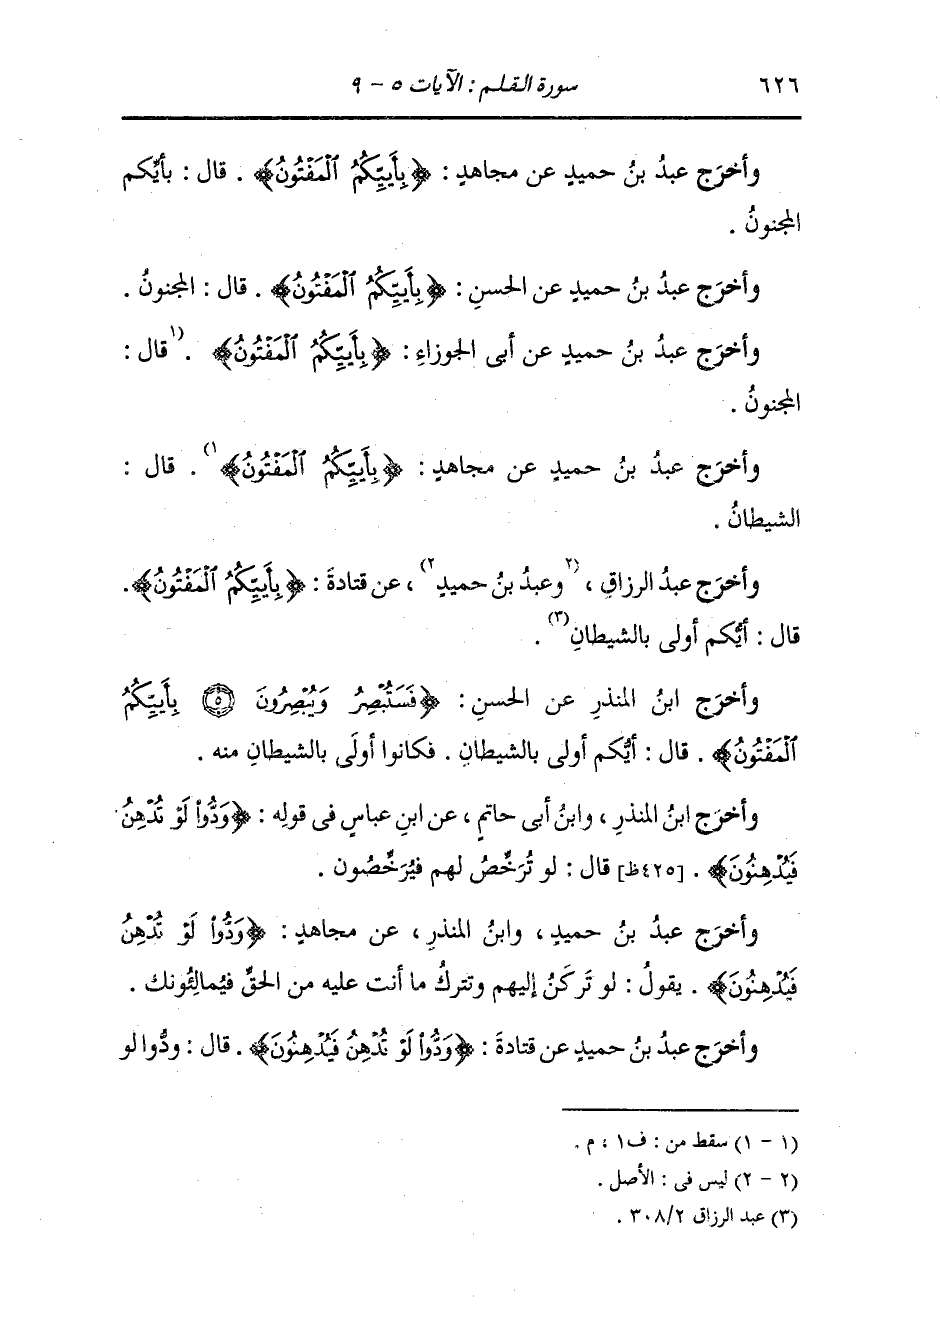 ٦٢٦ سورة القلم : الآيات ٥ - ٩
وأخرَج عبدُ بنُ حميدٍ عن مجاهدٍ : ﴿بِأَييِّكُمُ ٱلْمَفْتُونُ﴾ . قال : بأيِّكم
المجنونُ .
وأخرَج عبدُ بنُ حميدٍ عن الحسنِ : ﴿بِأَييِّكُمُ ٱلْمَفْتُونُ﴾ . قال : المجنونُ .
وأخرَج عبدُ بنُ حميدٍ عن أبى الجوزاءِ : ﴿بِأَييِّكُمُ ٱلْمَفْتُونُ﴾ . (١قال :
المجنونُ .
وأخرَج عبدُ بنُ حميدٍ عن مجاهدٍ : ﴿بِأَييِّكُمُ ٱلْمَفْتُونُ﴾١) . قال :
الشيطانُ .
وأخرَج عبدُ الرزاقِ ، (٢وعبدُ بنُ حميدٍ٢) ، عن قتادةَ : ﴿بِأَييِّكُمُ ٱلْمَفْتُونُ﴾ .
قال : أيُّكم أولى بالشيطانِ(٣) .
وأخرَج ابنُ المنذرِ عن الحسنِ : ﴿فَسَتُبْصِرُ وَيُبْصِرُونَ ۝٥ بِأَييِّكُمُ
ٱلْمَفْتُونُ﴾ . قال : أيُّكم أولى بالشيطانِ . فكانوا أولَى بالشيطانِ منه .
وأخرَج ابنُ المنذرِ ، وابنُ أبى حاتمٍ ، عن ابنِ عباسٍ فى قولِه : ﴿وَدُّوا۟ لَوْ تُدْهِنُ
فَيُدْهِنُونَ﴾ . [٤٢٥ظ] قال : لو تُرَخِّصُ لهم فيُرَخِّصُون .
وأخرَج عبدُ بنُ حميدٍ ، وابنُ المنذرِ ، عن مجاهدٍ : ﴿وَدُّوا۟ لَوْ تُدْهِنُ
فَيُدْهِنُونَ﴾ . يقولُ : لو تَركَنُ إليهم وتتركُ ما أنت عليه من الحقِّ فيُمالِئُونك .
وأخرَج عبدُ بنُ حميدٍ عن قتادةَ : ﴿وَدُّوا۟ لَوْ تُدْهِنُ فَيُدْهِنُونَ﴾ . قال : ودُّوا لو
(١ - ١) سقط من : ف١ ، م .
(٢ - ٢) ليس فى : الأصل .
(٣) عبد الرزاق ٣٠٨/٢ .